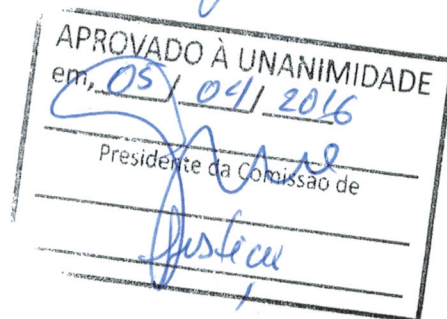 APROVADO À UNANIMIDADE
em, 05 / 04 / 2016
Presidente da Comissão de
Justiça